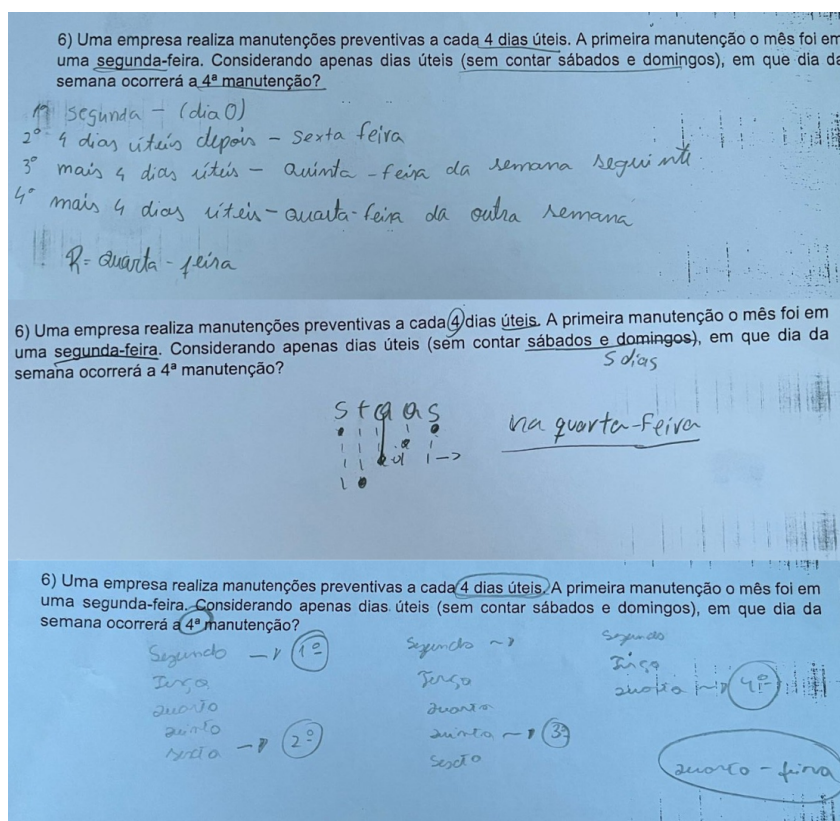 6) Uma empresa realiza manutenções preventivas a cada 4 dias úteis. A primeira manutenção o mês foi em
uma segunda-feira. Considerando apenas dias úteis (sem contar sábados e domingos), em que dia da
semana ocorrerá a 4ª manutenção?
1º segunda - (dia 0)
2º 4 dias úteis depois - sexta feira
3º mais 4 dias úteis - quinta-feira da semana seguinte
4º mais 4 dias úteis - quarta-feira da outra semana
R= quarta-feira
6) Uma empresa realiza manutenções preventivas a cada 4 dias úteis. A primeira manutenção o mês foi em
uma segunda-feira. Considerando apenas dias úteis (sem contar sábados e domingos), em que dia da
semana ocorrerá a 4ª manutenção?
5 dias
S t q q s
na quarta-feira
6) Uma empresa realiza manutenções preventivas a cada 4 dias úteis. A primeira manutenção o mês foi em
uma segunda-feira. Considerando apenas dias úteis (sem contar sábados e domingos), em que dia da
semana ocorrerá a 4ª manutenção?
Segunda → 1º
Terça
quarta
quinta
sexta → 2º
Segunda
Terça
quarta
quinta → 3º
sexta
Segunda
Terça
quarta → 4º
quarta-feira